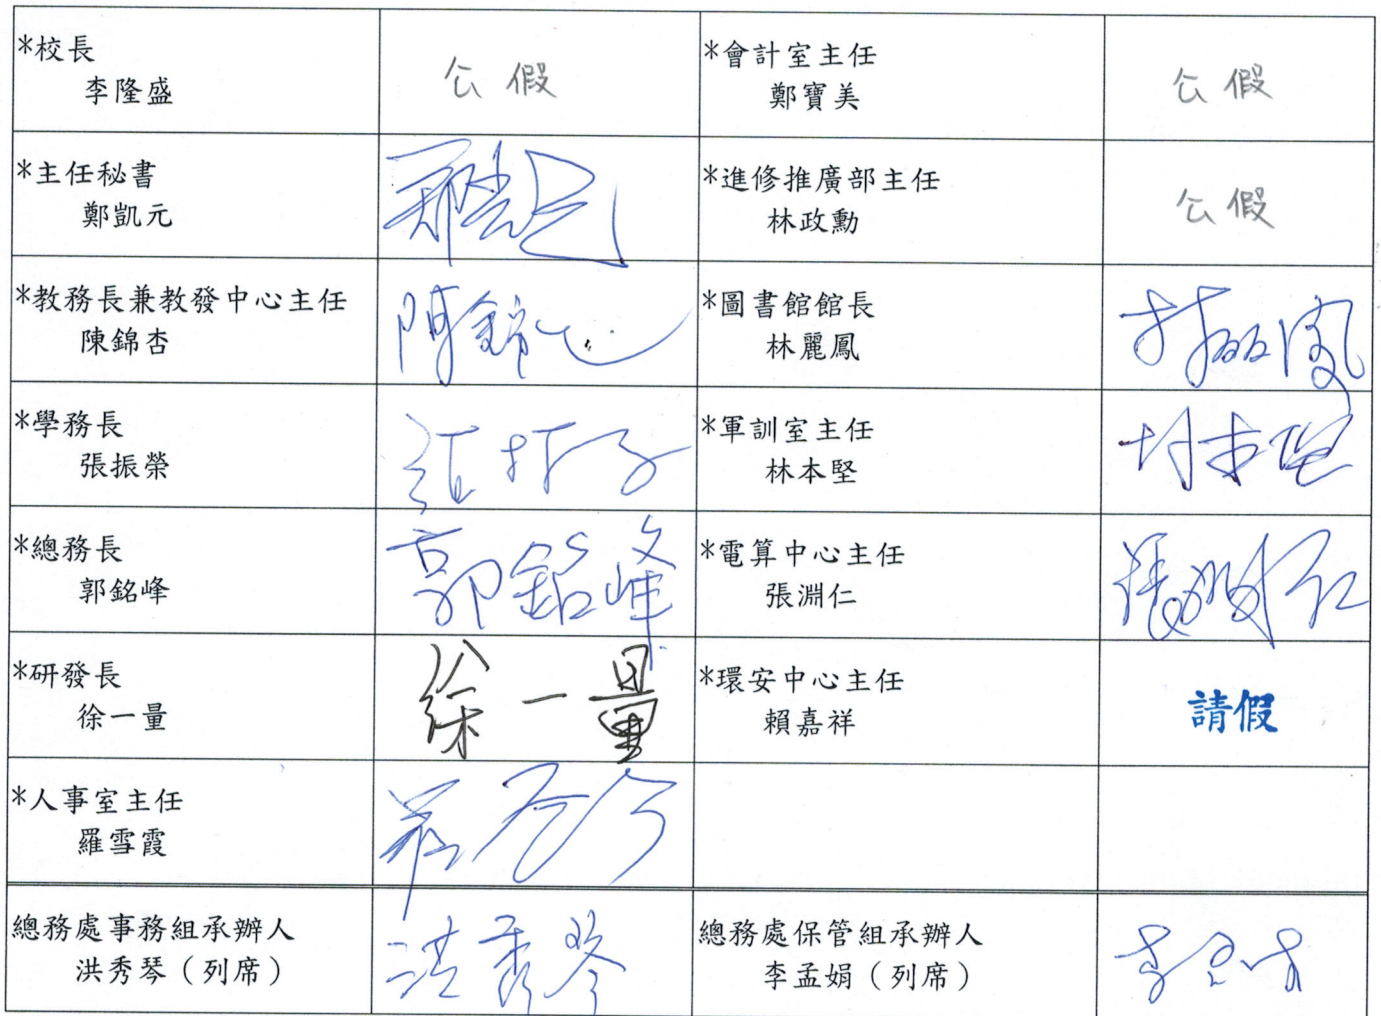 *校長
李隆盛
公假
*會計室主任
鄭寶美
公假
*主任秘書
鄭凱元
鄭凱元
*進修推廣部主任
林政勳
公假
*教務長兼教發中心主任
陳錦杏
陳錦杏
*圖書館館長
林麗鳳
林麗鳳
*學務長
張振榮
*軍訓室主任
林本堅
林本堅
*總務長
郭銘峰
郭銘峰
*電算中心主任
張淵仁
張淵仁
*研發長
徐一量
徐一量
*環安中心主任
賴嘉祥
請假
*人事室主任
羅雪霞
總務處事務組承辦人
洪秀琴（列席）
洪秀琴
總務處保管組承辦人
李孟娟（列席）